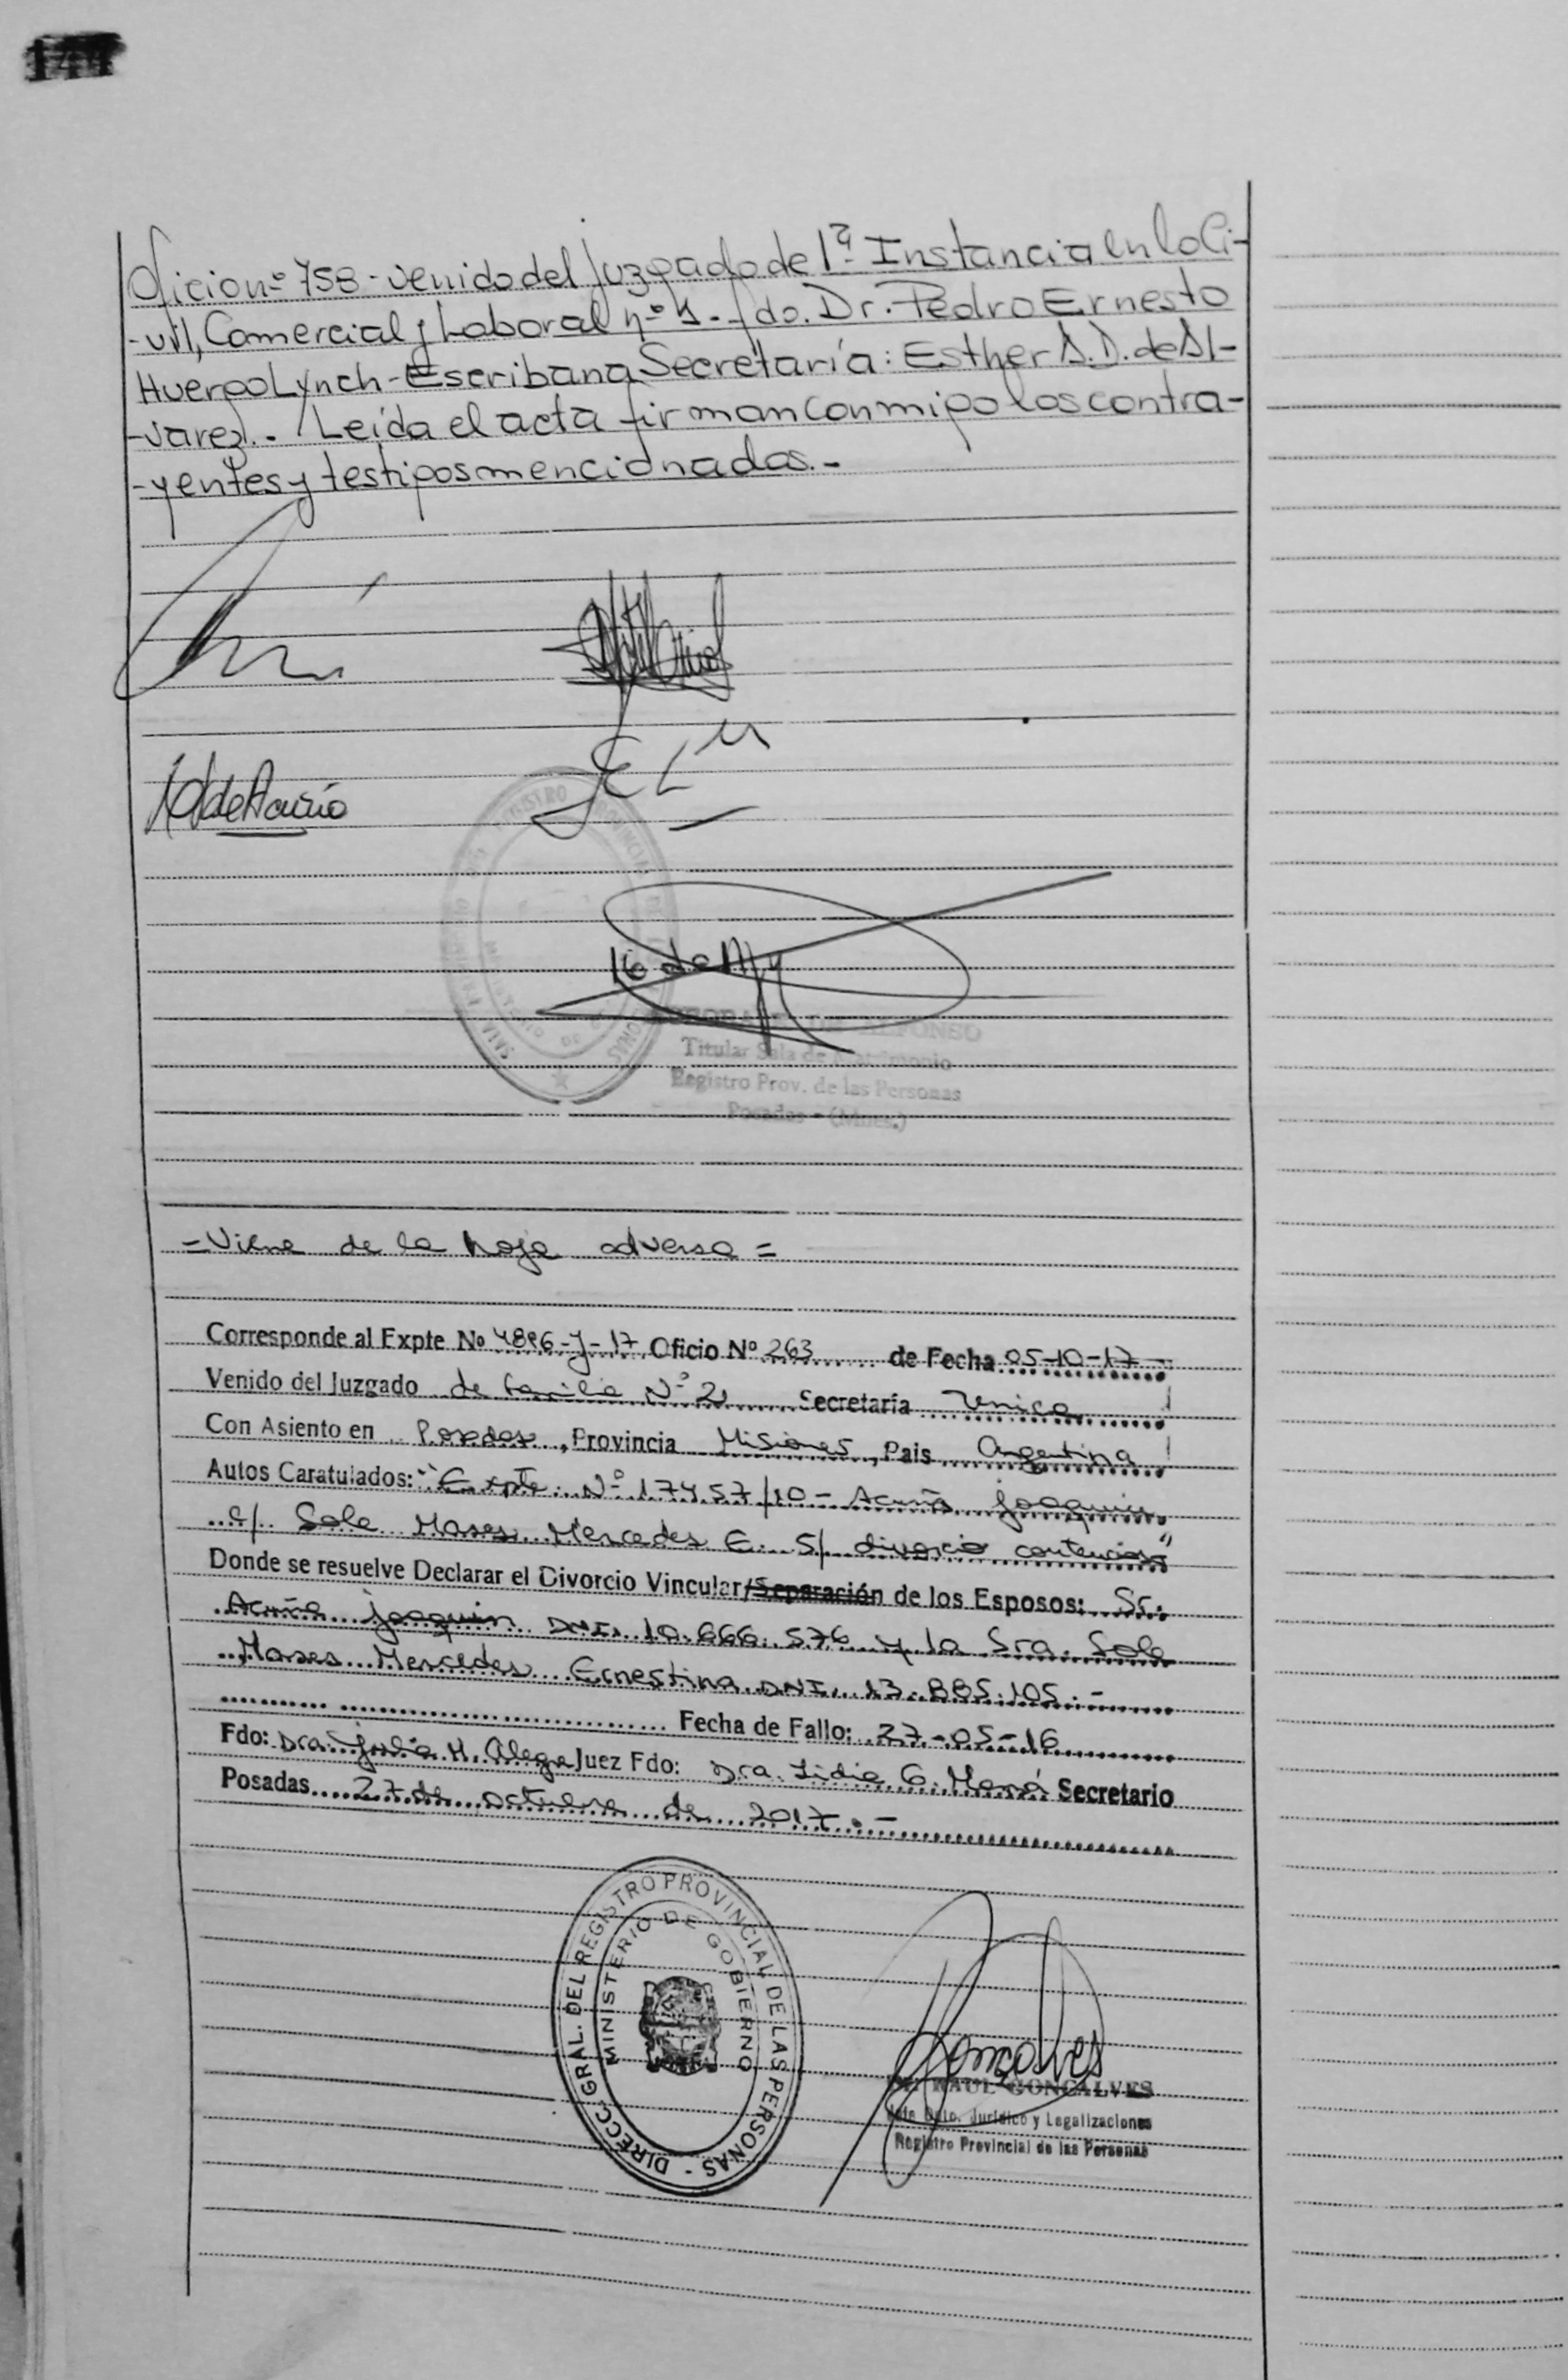 144
Oficio nº 758 - venido del Juzgado de 1ª Instancia en lo Ci-
-vil, Comercial y Laboral nº 1.- fdo. Dr. Pedro Ernesto
Huergo Lynch - Escribana Secretaría: Esther A. D. de Al-
-varez.- Leída el acta firman conmigo los contra-
-yentes y testigos mencionados.-
Titular Sala de Matrimonio
Registro Prov. de las Personas
Posadas - (Mnes.)
= Viene de la hoja adversa =
Corresponde al Expte Nº 4896-J-17 Oficio Nº 263 de Fecha 05-10-17
Venido del Juzgado de Familia Nº 2 Secretaría Unica
Con Asiento en Posadas, Provincia Misiones, Pais Argentina
Autos Caratulados: "Expte. Nº 17457/10 - Acuña Joaquin
c/ Sole Mases Mercedes E. S/ divorcio contencioso"
Donde se resuelve Declarar el Divorcio Vincular/Separación de los Esposos: Sr.
Acuña Joaquin DNI. 10.666.576 y la Sra. Sole
Mases Mercedes Ernestina DNI. 13.885.105.-
Fecha de Fallo: 27-05-16
Fdo: Dra. Julia H. Alega Juez Fdo: Dra. Lidia G. Secretario
Posadas 27 de octubre de 2017.-
DIRECC. GRAL. DEL REGISTRO PROVINCIAL DE LAS PERSONAS -
MINISTERIO DE GOBIERNO
Gonçalves
RAUL GONCALVES
Jefe Dpto. Jurídico y Legalizaciones
Registro Provincial de las Personas